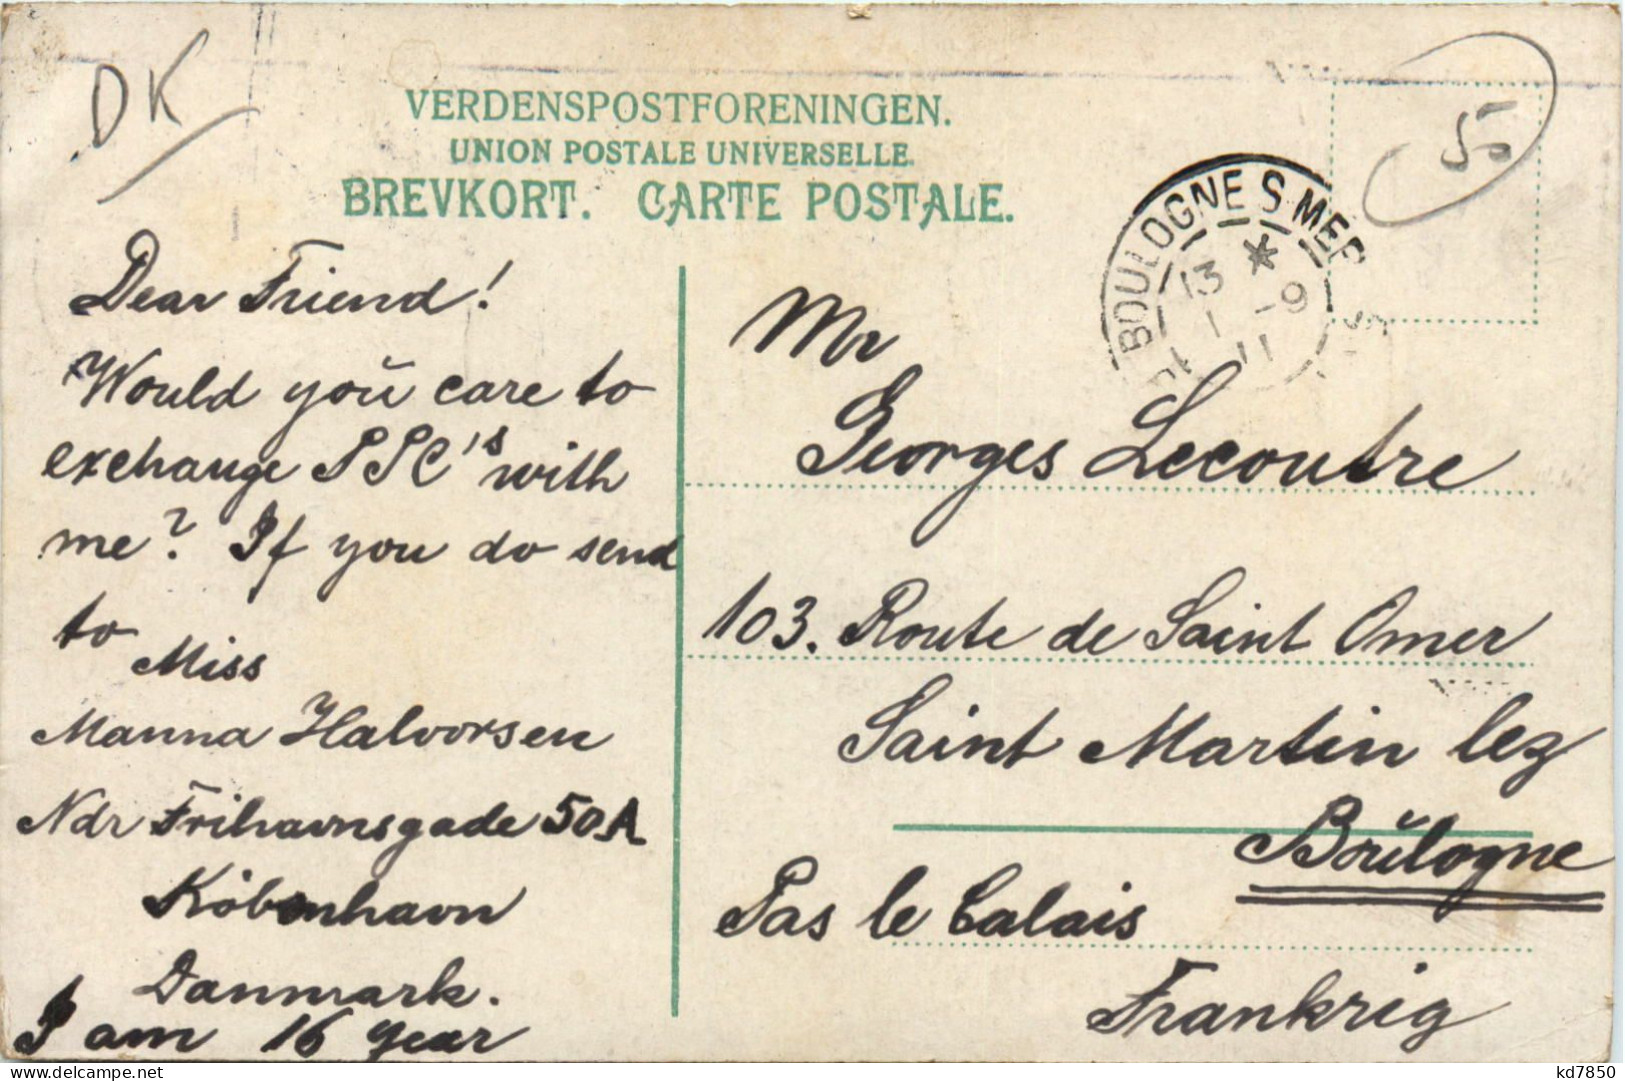 DK
VERDENSPOSTFORENINGEN.
UNION POSTALE UNIVERSELLE.
BREVKORT. CARTE POSTALE.
55
BOULOGNE S MER
13 *
1 -9
11
Dear Friend!
Would yoŭ care to
exchange PPC's with
me? If you do send
to Miss
Manna Halvorsen
Ndr Frihavnsgade 50A
Köbenhavn
Danmark.
I am 16 year
Mr
Georges Lecoutre
103. Route de Saint Omer
Saint Martin lez
Boŭlogne
Pas le Calais
Frankrig
kd7850